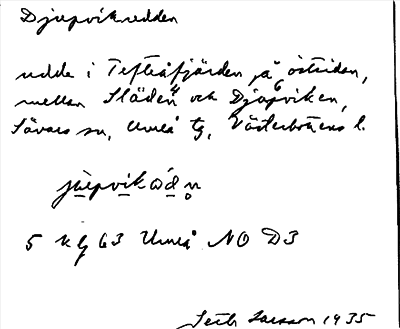 Djupviksudden
udde i Tefteåfjärden, på östsidan,
mellan Släden och Djupviken,
Sävars sn, Umeå tg, Västerbottens l.
jɯpvikɷdn̥
5 kg 63 Umeå NO D3
Seth Larsson 1935